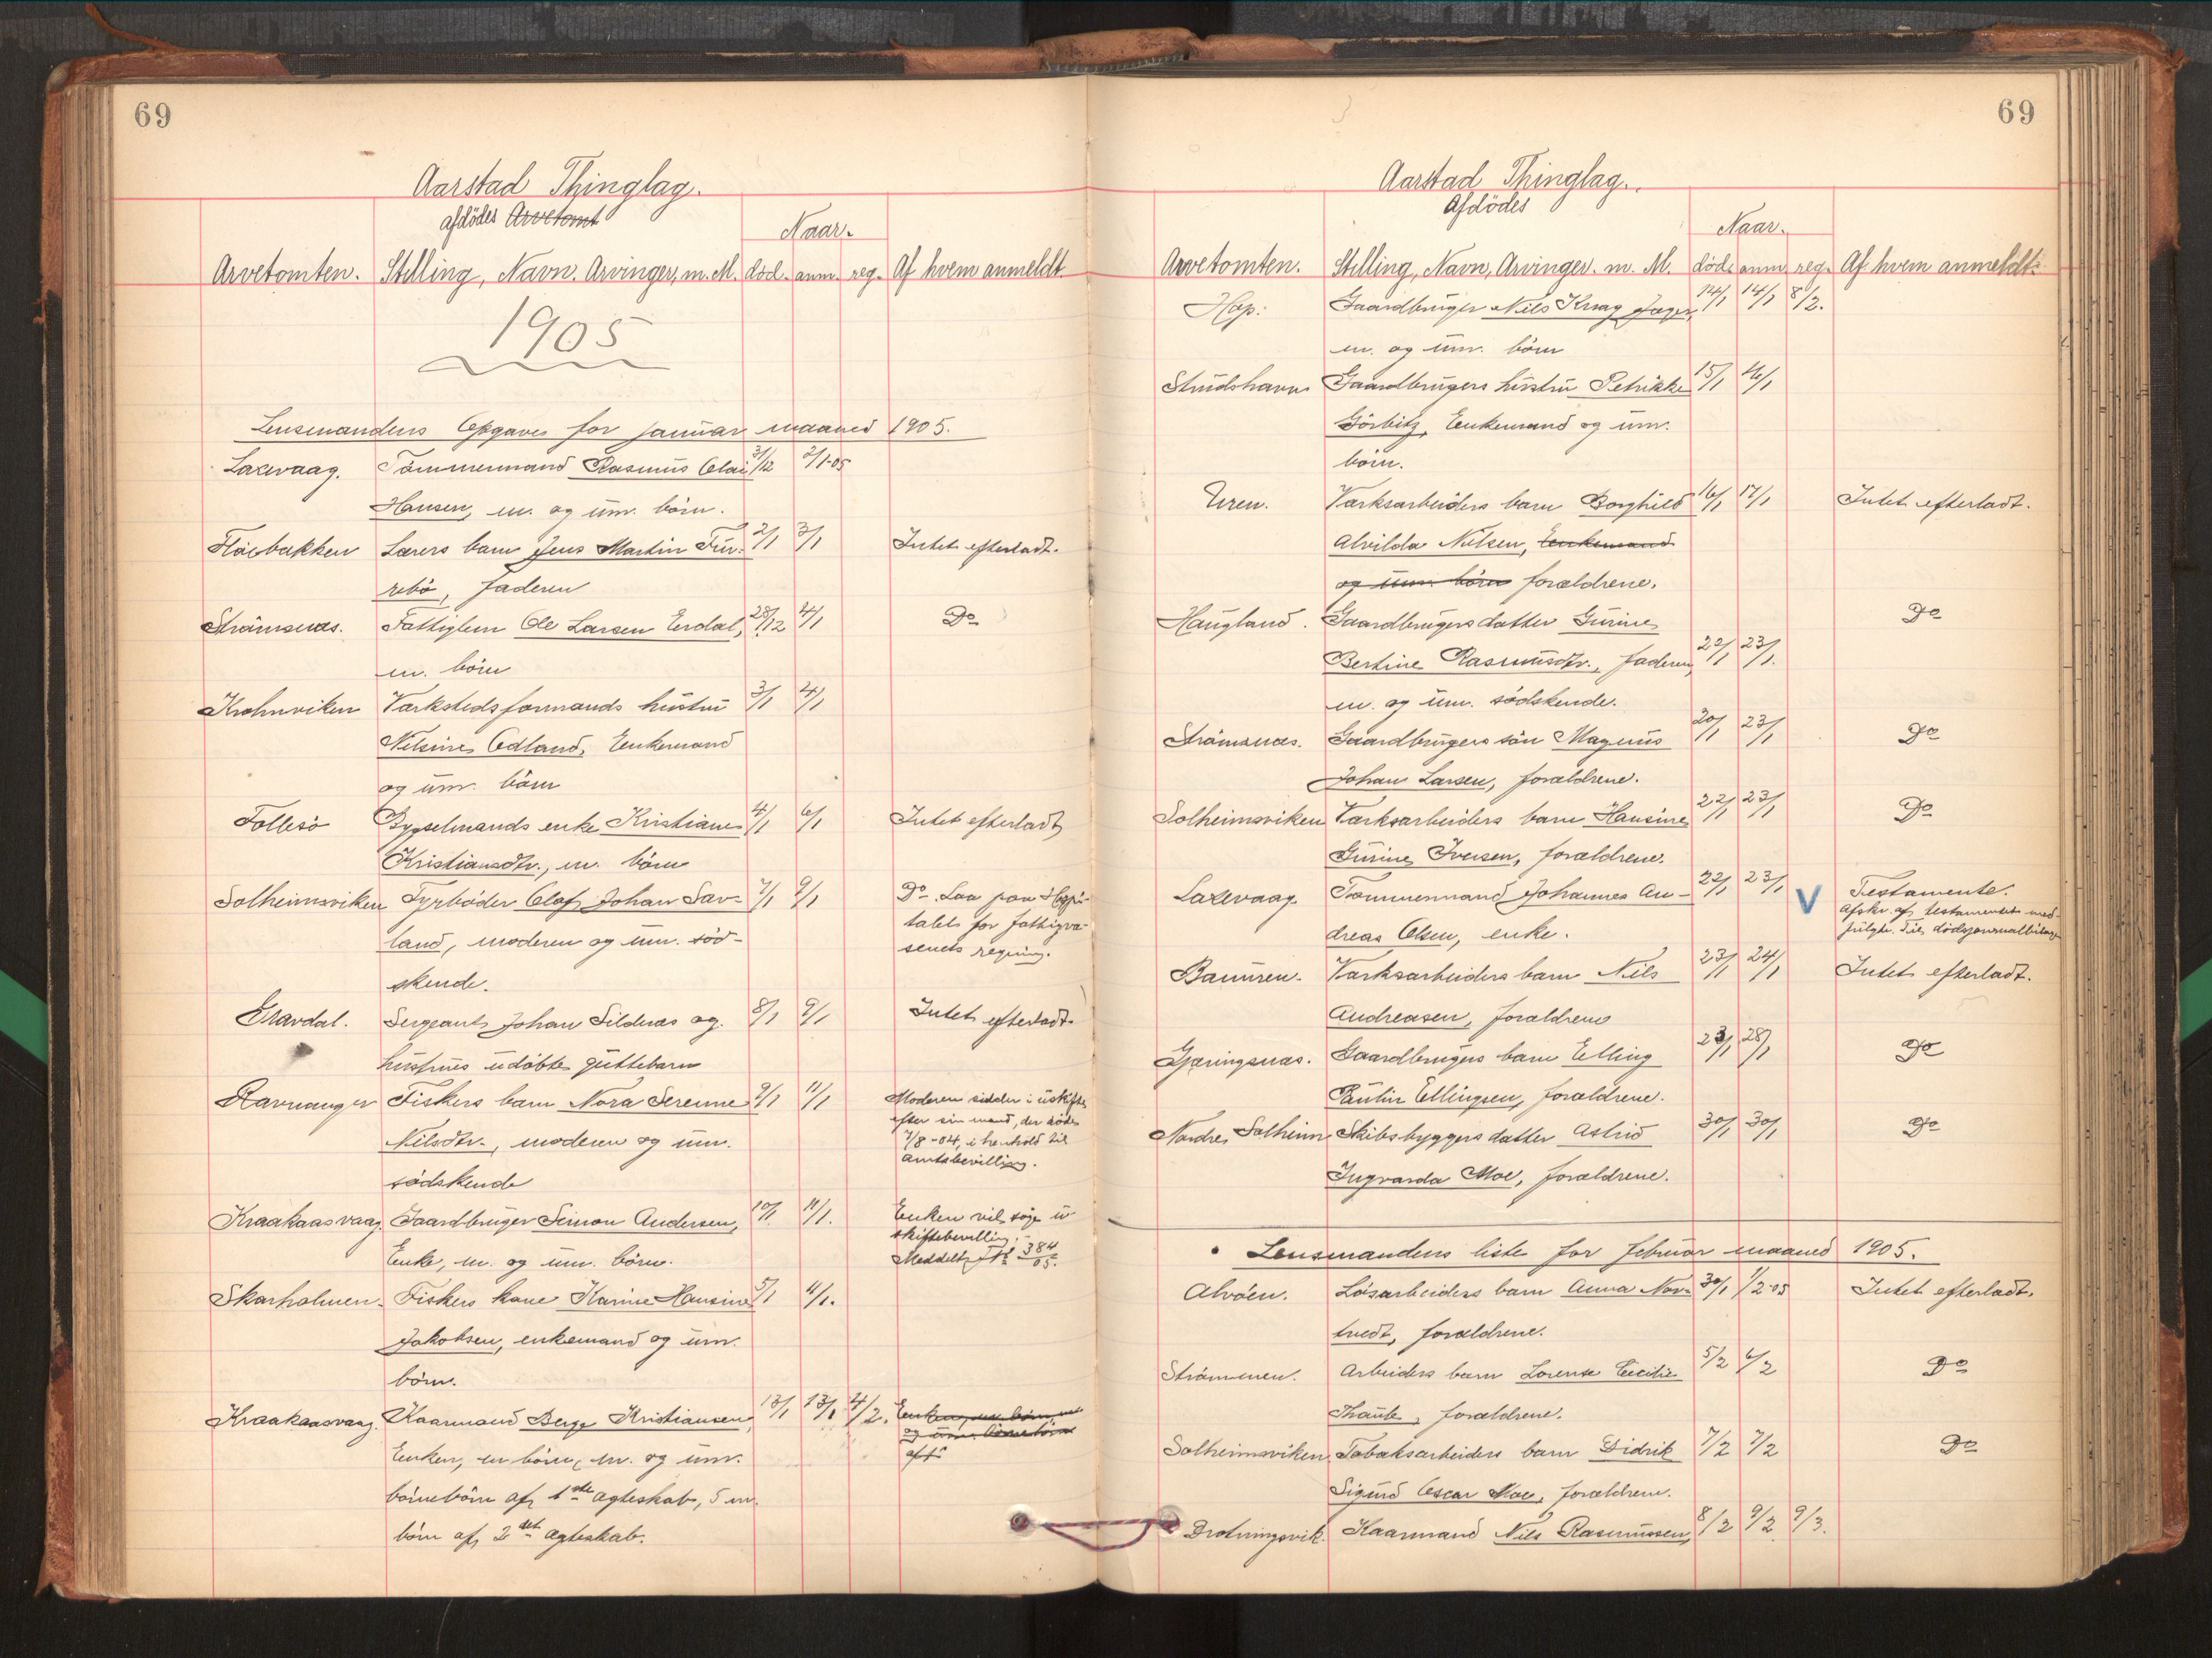 69
Aarstad Thinglag.
afdödes Arvetomt
Naar.
Arvetomten. Stilling, Navn. Arvinger, m. M. död. anm. reg. Af hvem anmeldt
1905
Lensmandens Opgave for januar maaned 1905.
Laxevaag. Tömmermand Rasmus Olai 31/12 2/1-05
Hansen, m. og um. börn.
Flöebakken Lærers barn Jens Martin Fur- 2/1 3/1 Intet efterladt.
rebö, faderen
Strömsnæs. Fattiglem Ole Larsen Erdal, 28/12 4/1 Do
m. börn
Krohnviken Værkstedsformands hustru 3/1 4/1
Nilsine Ødland, Enkemand
og um. börn
Follesö Bygselmands enke Kristiane 4/1 6/1 Intet efterladt
Kristiansdtr., m. börn
Solheimsviken Fyrböder Olaf Johan Sæv- 7/1 9/1 Do. Laa paa Hospi-
land, moderen og um. söd- talet for fattigvæ-
skende. senets regning.
Gravdal. Sergeant Johan Sildnæs og 8/1 9/1 Intet efterladt.
hustrues udöbte guttebarn
Ravnanger Fiskers barn Nora Serenne 9/1 11/1 Moderen sidder i uskifte
Nilsdtr., moderen og um. efter sin mand, der döde
södskende 7/8-04, i henhold til
amtsbevilling.
Kraakaasvaag. Gaardbruger Simon Andersen, 10/1 11/1. Enken vil söge u-
Enke, m. og um. börn. skiftebevilling.
Meddelt 384/05.
Skarholmen. Fiskers kone Karine Hansine 5/1 11/1.
Jakobsen, enkemand og um.
börn.
Kraakaasvaag. Kaarmand Berge Kristiansen, 13/1 13/1 4/2. Enken, m. börn, m.
Enken, m börn, m. og um. og um. börnebörn
börnebörn af 1ste ægteskab, 5 m. af 1
börn af 2det ægteskab.
69
Aarstad Thinglag.
Afdödes
Naar.
Arvetomten. Stilling, Navn, Arvinger. m. M. död. anm. reg. Af hvem anmeldt.
Hop. Gaardbruger Nils Krag 14/1 14/1 8/2.
m. og um. börn
Strudshavn Gaardbrugers hustru Petrikke 15/1 16/1
Görbitz, Enkemand og um.
börn.
Uren. Værksarbeiders barn Borghild 16/1 17/1 Intet efterladt.
Alvilda Nilsen, Enkemand
og um. börn forældrene.
Haugland. Gaardbrugers datter Gurine Do
Bertine Rasmusdtr., faderen, 22/1 23/1.
m. og um. södskende.
Strömsnæs. Gaardbrugers sön Magnus 20/1 23/1 Do
Johan Larsen, forældrene.
Solheimsviken Værksarbeiders barn Hansine 22/1 23/1 Do
Gurine Iversen, forældrene.
Laxevaag. Tömmermand Johannes An- 22/1 23/1 V Testamente.
dreas Olsen, enke. Afskr. af testamentet med-
fulgte. Til dödsjournalbilage
Banuren. Værksarbeiders barn Nils 23/1 24/1 Intet efterladt.
Andreasen, forældrene
Gjæringsnæs. Gaardbrugers barn Elling 23/1 28/1 Do
Paulin Ellingsen, forældrene.
Nordre Solheim Skibsbyggers datter Astrid 30/1 30/1 Do
Ingvarda Moe, forældrene.
Lensmandens liste for februar maaned 1905.
Alvöen. Lösarbeiders barn Anna Nor- 30/1 1/2-05 Intet efterladt.
tvedt, forældrene.
Strömmen. Arbeiders barn Lorense Cecilie 5/2 6/2 Do
Thaule, forældrene.
Solheimsviken Tobaksarbeiders barn Didrik 7/2 7/2 Do
Sigurd Oscar Moe, forældrene.
Drotningsvik. Kaarmand Nils Rasmussen, 8/2 9/2 9/3.